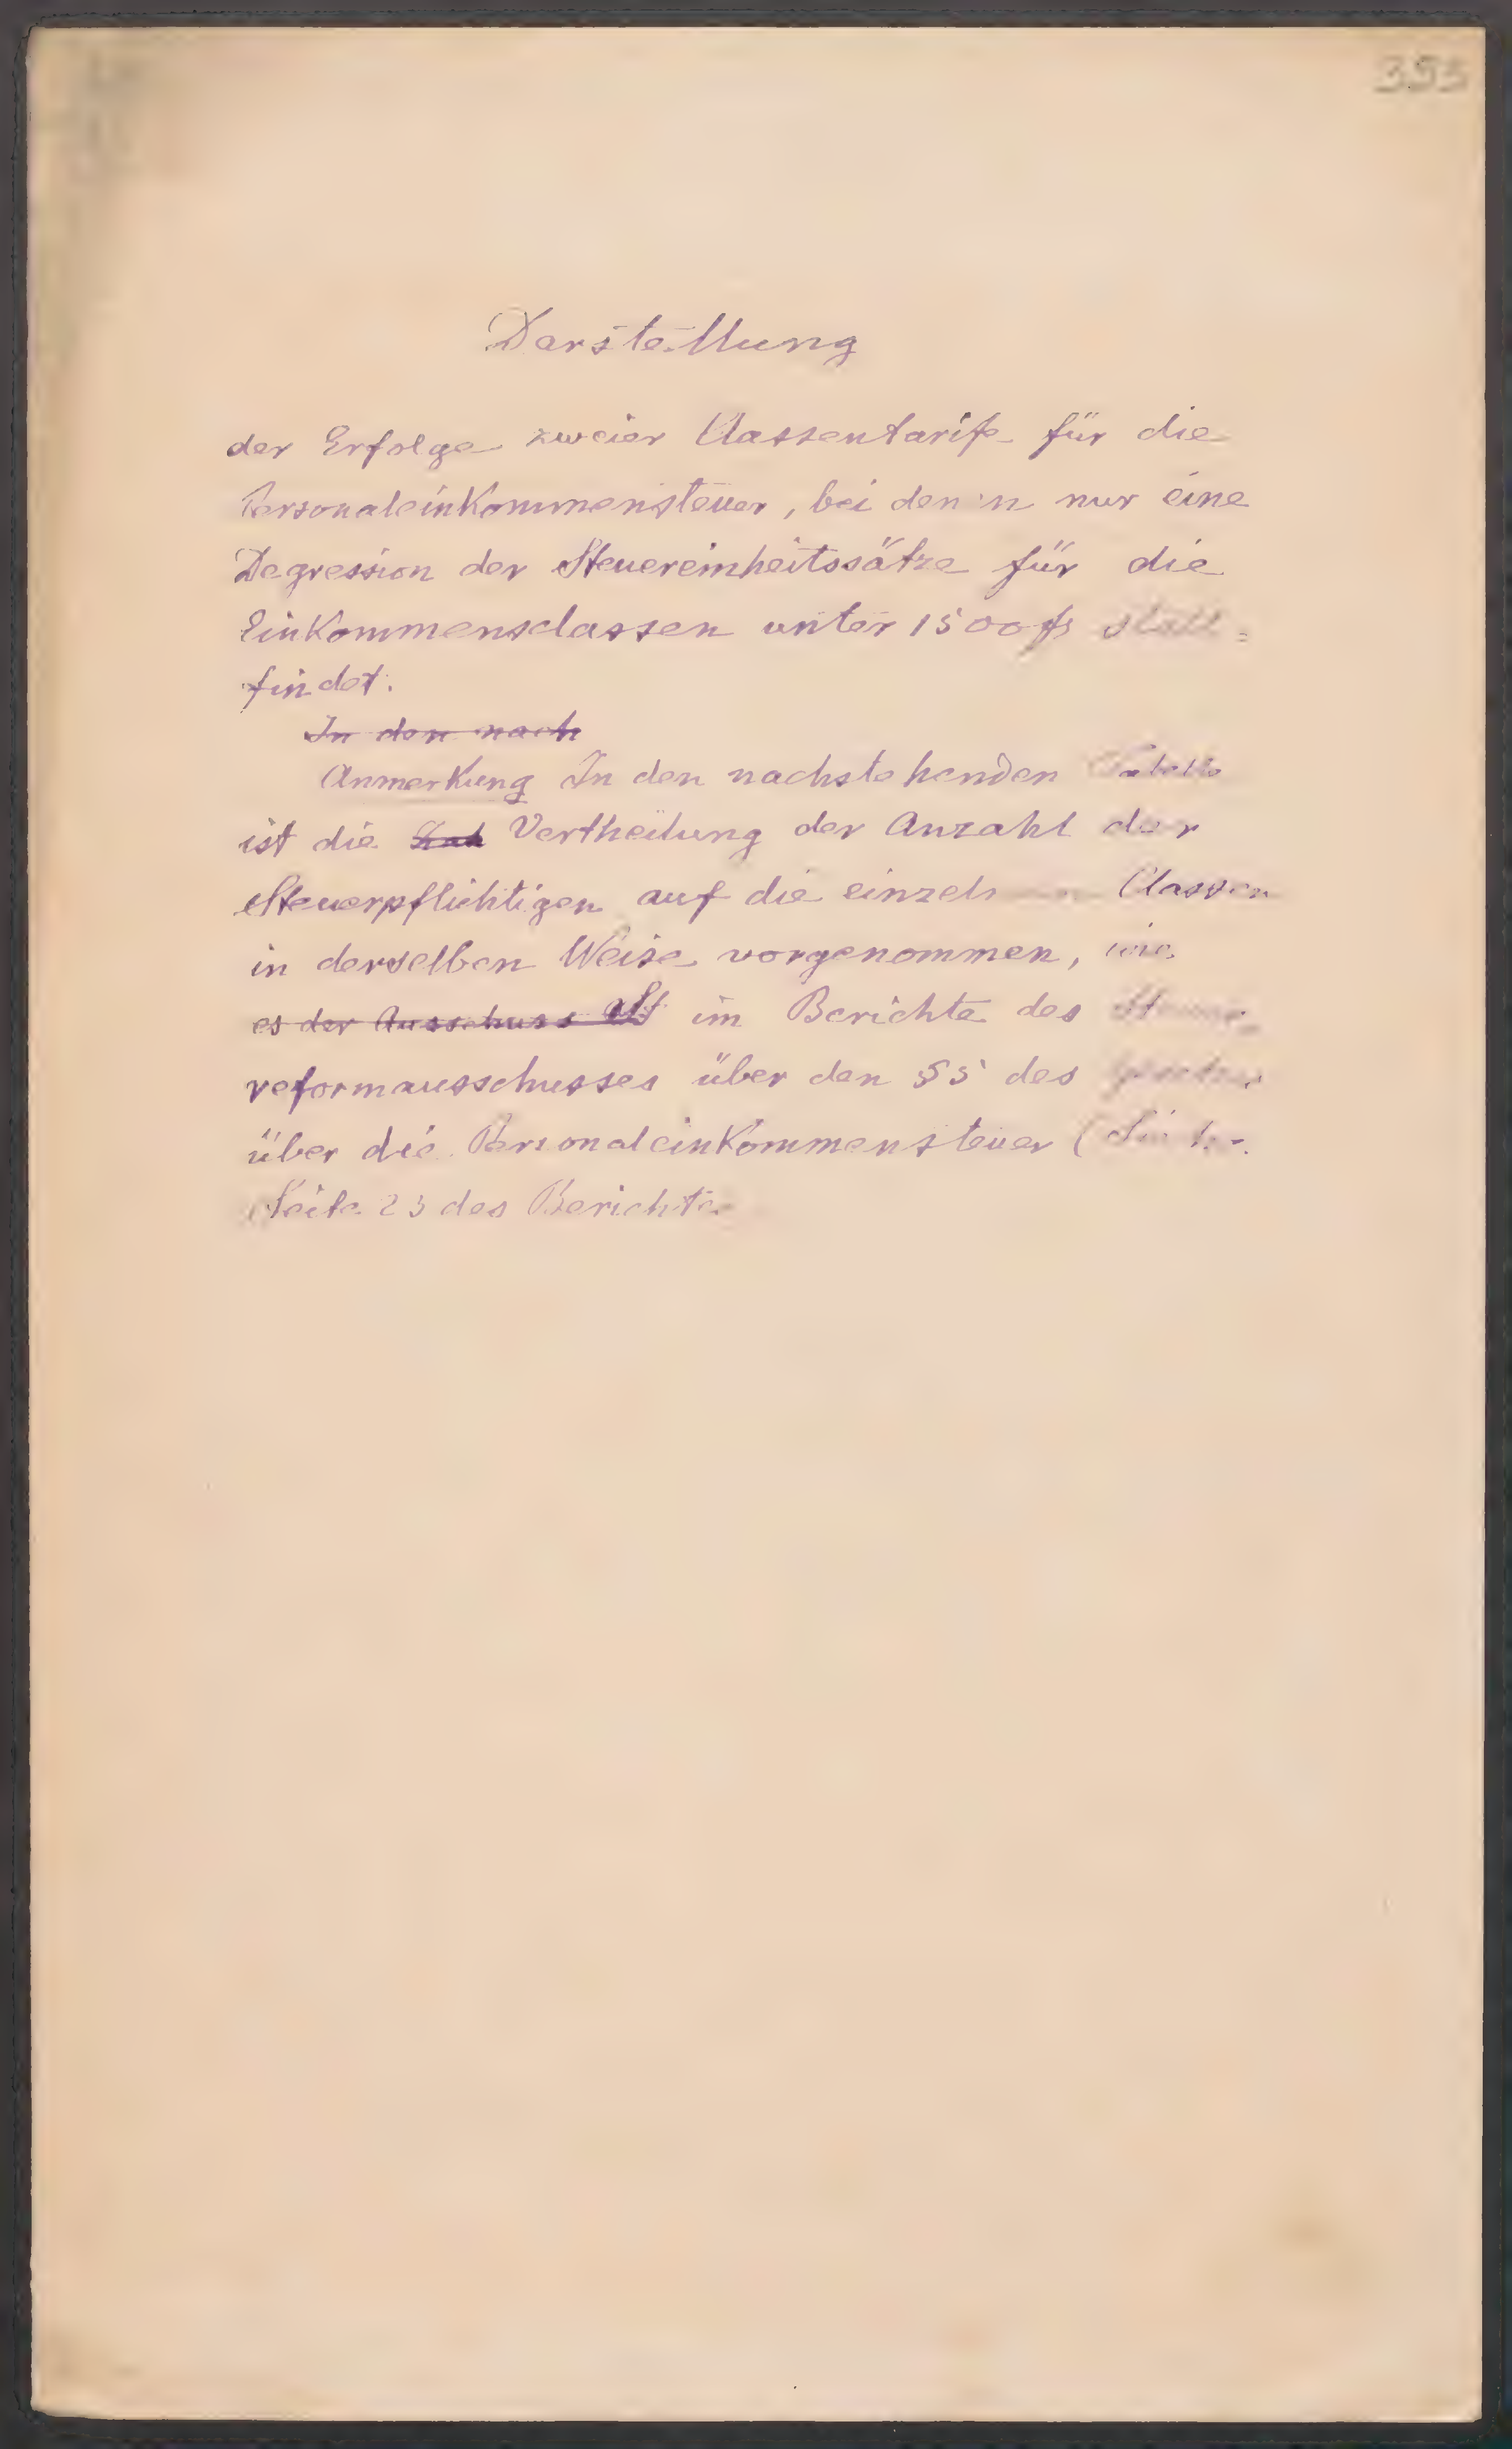 353
Darstellung
der Erfolge zweier Classentarife für die
Personaleinkommensteuer, bei denen nur eine
Degression der Steuereinheitssätze für die
Einkommensclassen unter 1500 fl statt=
findet.
In den nach
Anmerkung In den nachstehenden
ist die Vertheilung der Anzahl der
Steuerpflichtigen auf die einzeln Classen
in derselben Weise vorgenommen, wie
es der Ausschuss im Berichte des Steuer
reformausschusses über den §5 des
über die Personaleinkommensteuer (
Seite 23 des Berichte